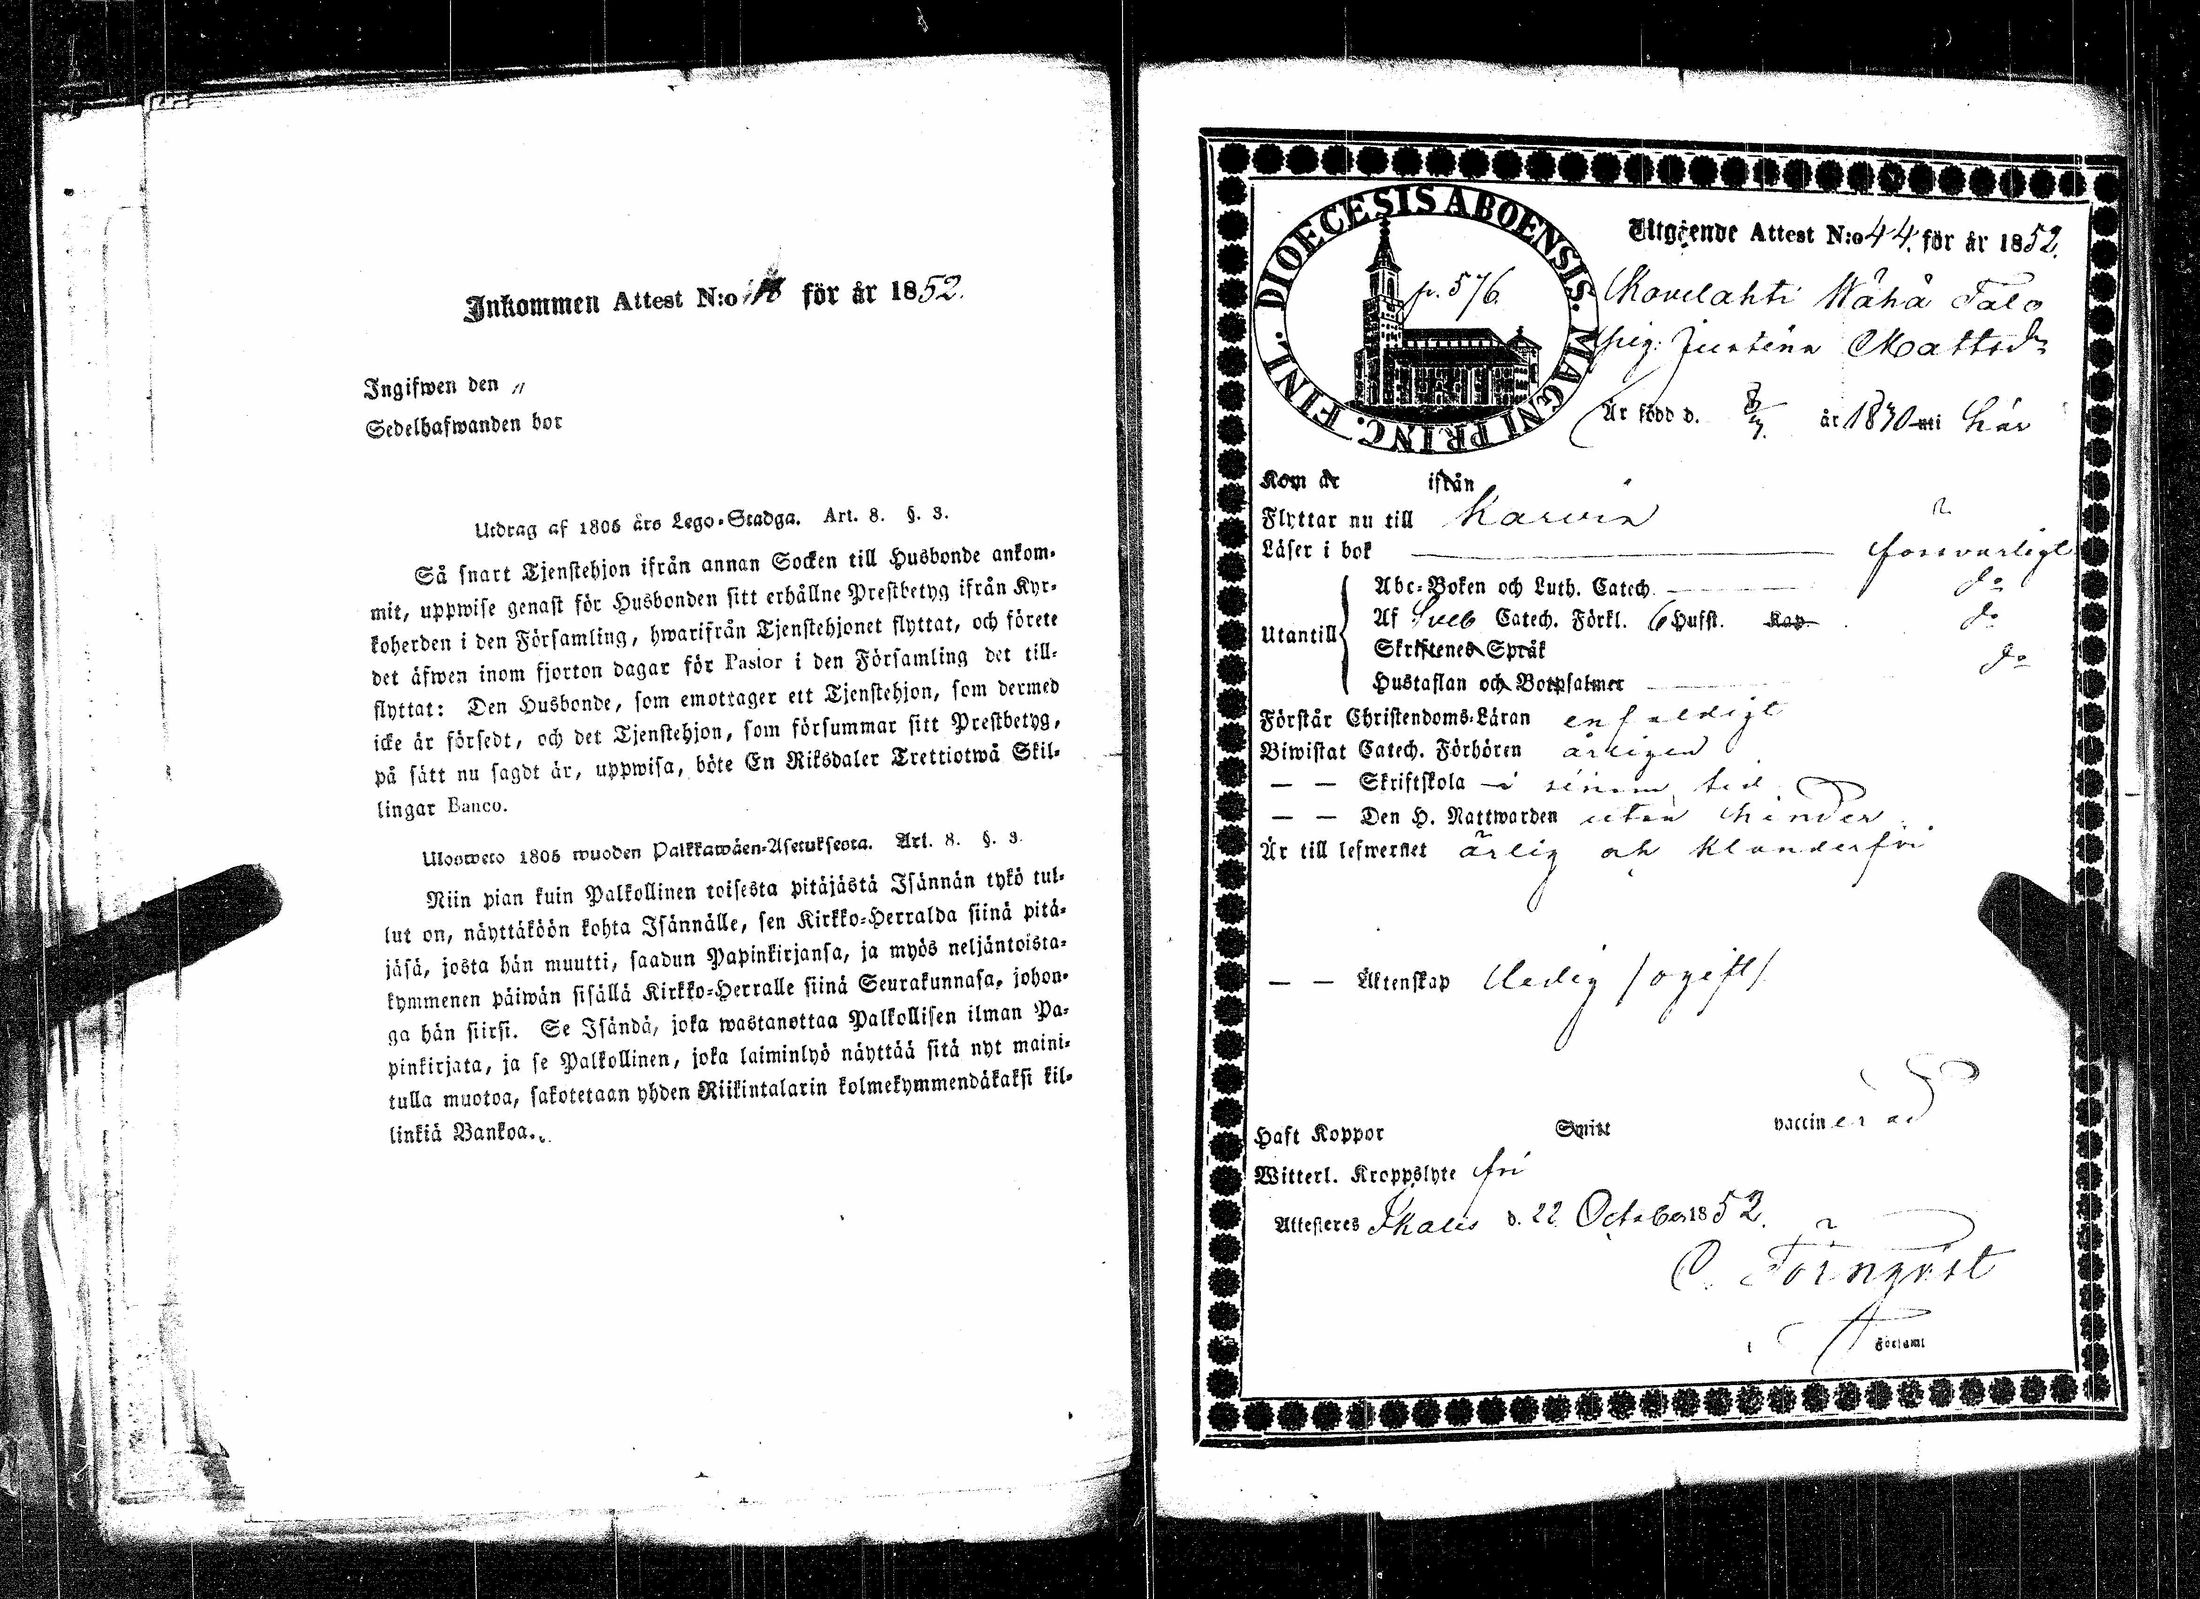 Inkommen Attest N:o 18 för år 1852.
Ingifwen den
Sedelhafwanden bor
Utdrag af 1805 års Lego-Stadga. Art. 8. §. 3.
Så snart Tjenstehjon ifrån annan Socken till Husbonde ankom-
mit, uppwise genast för Husbonden sitt erhållne Prestbetyg ifrån Kyr-
koherden i den Församling, hwarifrån Tjenstehjonet flyttat, och förete
det äfwen inom fjorton dagar för Pastor i den Församling det till-
flyttat: Den Husbonde, som emottager ett Tjenstehjon, som dermed
icke är försedt, och det Tjenstehjon, som försummar sitt Prestbetyg,
på sätt nu sagdt är, uppwisa, böte En Riksdaler Trettiotwå Skil-
lingar Banco.
Ulosweto 1805 wuoden Palkkawäen-Asetuksesta. Art. 8. §. 3.
Niin pian kuin Palkollinen toisesta pitäjästä Isännän tykö tul-
lut on, näyttäköön kohta Isännälle, sen Kirkko-Herralda siinä pitä-
jäsä, josta hän muutti, saadun Papinkirjansa, ja myös neljäntoista-
kymmenen päiwän sisällä Kirkko-Herralle siinä Seurakunnasa, johon-
ga hän siirsi. Se Isändä, joka wastanottaa Palkollisen ilman Pa-
pinkirjata, ja se Palkollinen, joka laiminlyö näyttää sitä nyt maini-
tulla muotoa, sakotetaan yhden Riikintalarin kolmekymmendäkaksi kil-
linkiä Bankoa.
DIOECESIS ABOENSIS. MAGNI PRINC. FINL.
p. 576.
Utgående Attest N:o 44. för år 1852.
Kovelahti Wähä Talo
pig. Justina Mattsdr
Är född d. 8/7. år 1830 uti här
Kom år ifrån
Flyttar nu till Karvia
Läser i bok försvarligt
Utantill
Abc-Boken och Luth. Catech. do
Af Sveb Catech. Förkl. 6 Hufst. Kap. do
Skriftenes Språk
Hustaflan och Botpsalmer do
Förstår Christendoms-Läran enfaldigt
Biwistat Catech. Förhören årligen
— — Skriftskola i sinom tid
— — Den H. Nattwarden utan hinder
Är till lefwernet ärlig och klanderfri
— — Äktenskap Ledig /ogift/
Haft Koppor Smitt vaccinerad
Witterl. Kroppslyte fri
Attesteres Ikalis d. 22 October 1852.
C. Törnqvist
Förlamt